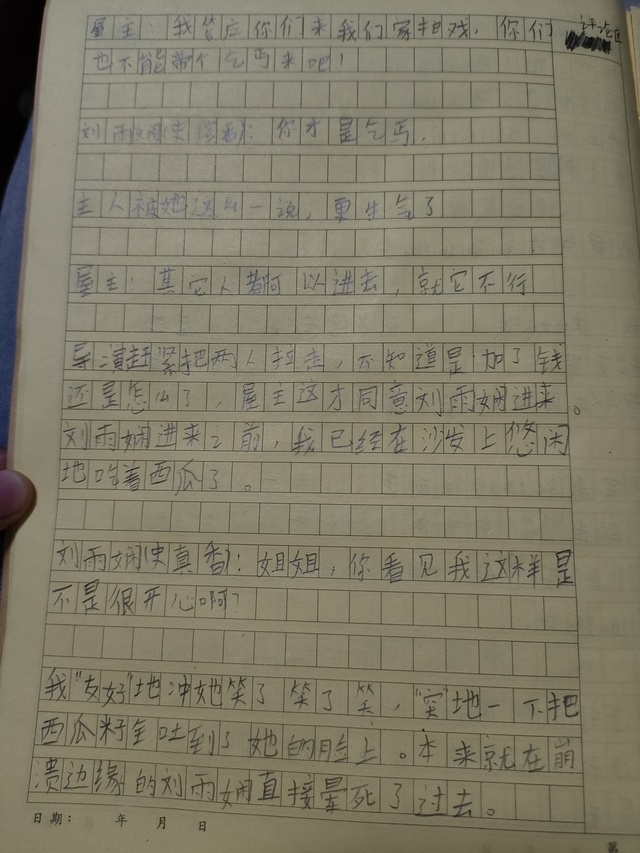 屋主：我答应你们来我们家拍戏，你们
评论区
也不能带个乞丐来吧！
刘雨娴(史真香)：你才是乞丐.
主人被她这么一说，更生气了
屋主：其它人都可以进去，就它不行
导演赶紧把两人拉走，不知道是加了钱
还是怎么了，屋主这才同意刘雨娴进来。
刘雨娴进来之前，我已经在沙发上悠闲
地吃着西瓜了。
刘雨娴(史真香)：姐姐，你看见我这样是
不是很开心啊？
我“友好”地冲她笑了笑了笑，“突”地一下把
西瓜籽全吐到了她的脸上。本来就在崩
溃边缘的刘雨娴直接晕死了过去。
日期： 年 月 日
第